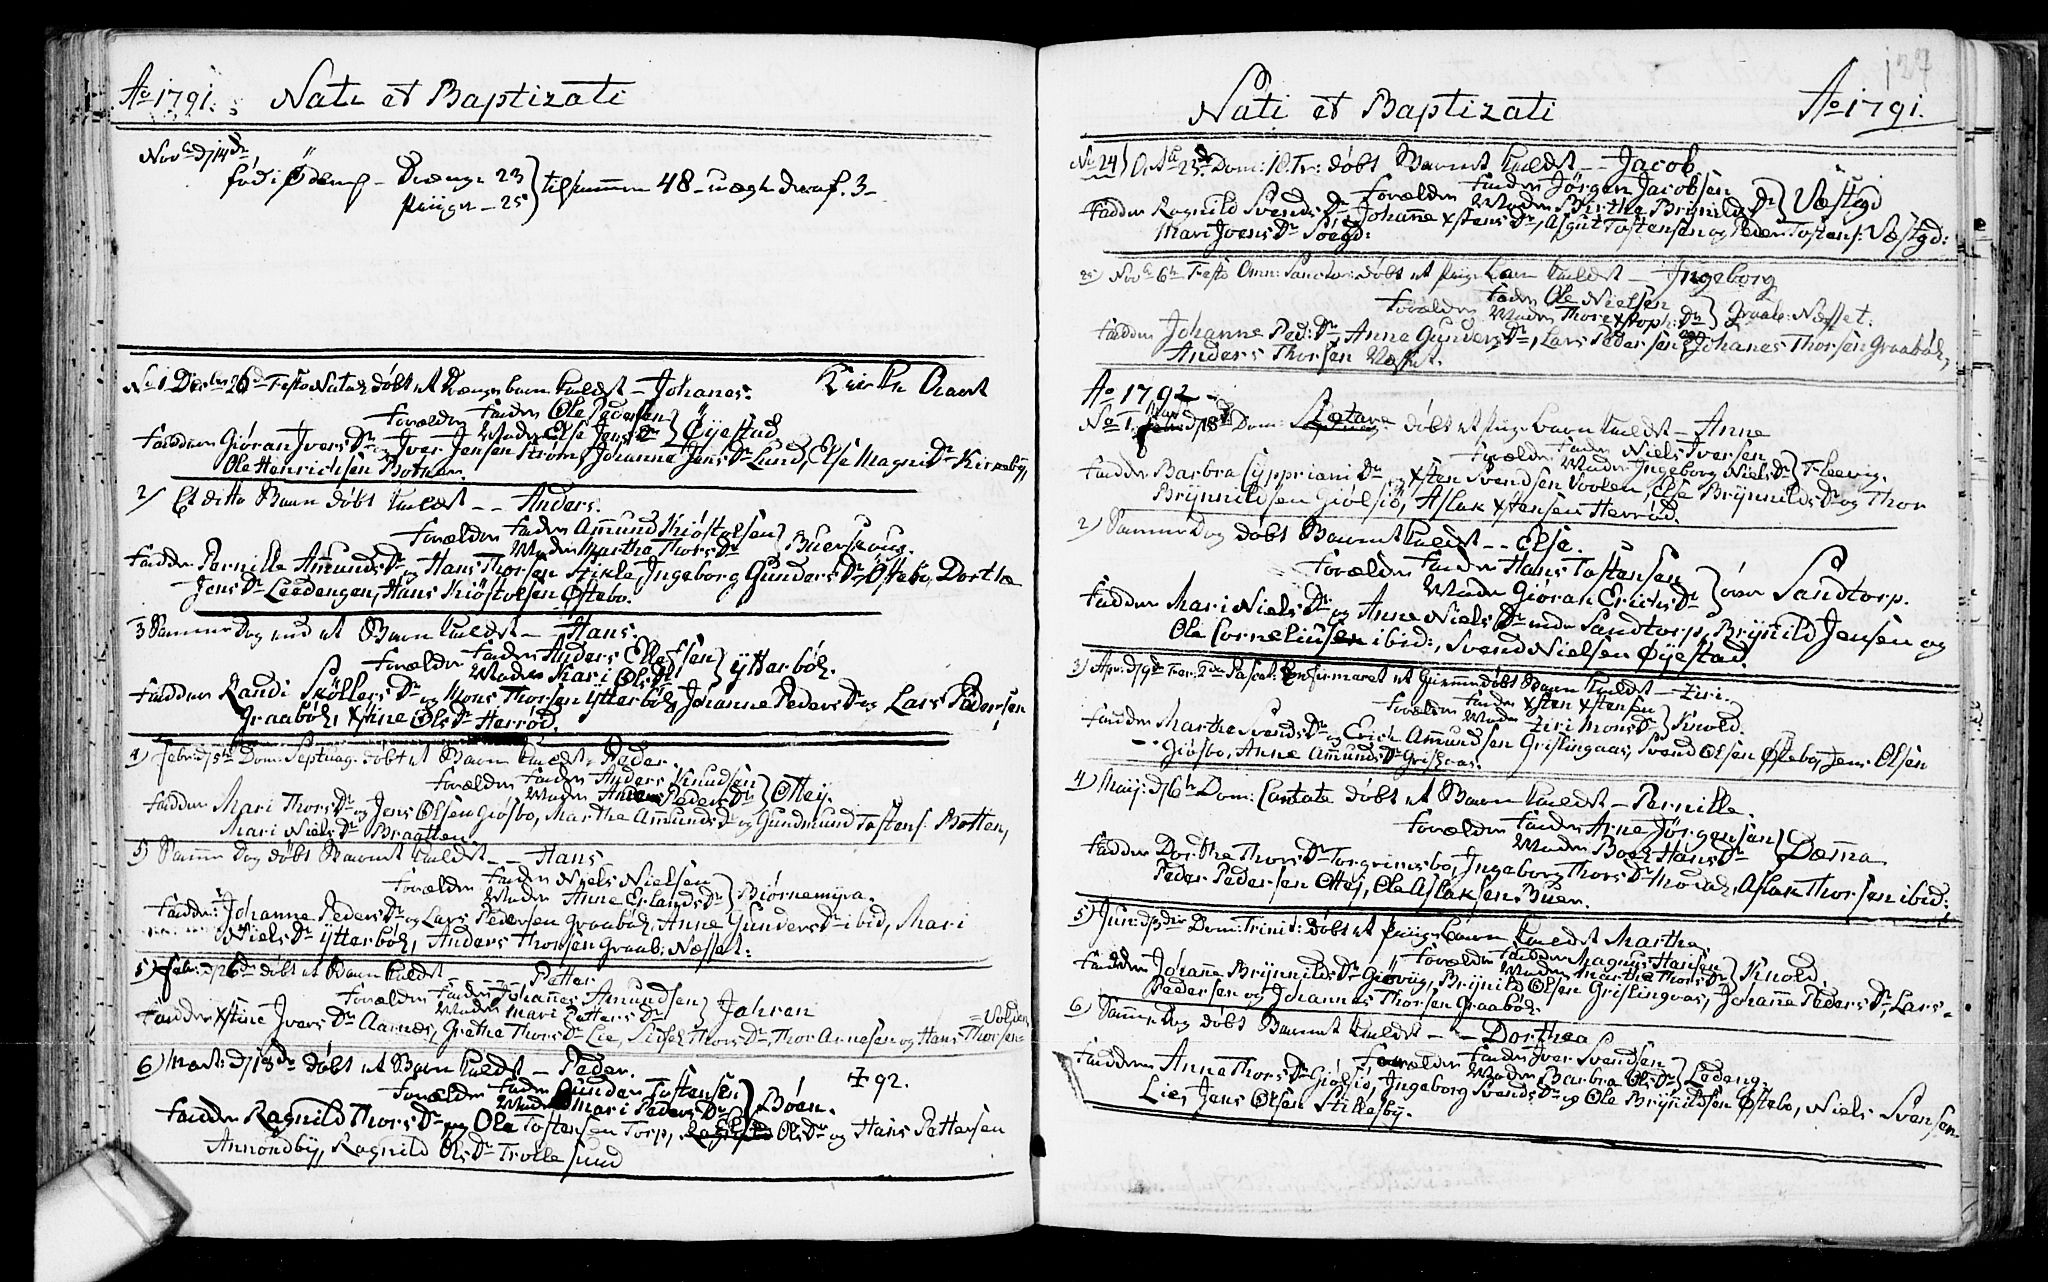 Ao 1791. Nati et Baptizati
Novb d/14de
födi Ödem – Drænge 23
Piiger – 25
tilsammen 48 – uægte deraf. 3 –
No 1 Decbr 26de Festo Natal döbt et Drænge barn kaldet – Johanes. Kirke Aaret
Forældre Fader Ole Pedersen
Moder Else JensDr Öÿestad
Faddere Giöran IversDr og Iver Jensen Ström, Johanne JensDr Lund, Else MagniDr Kirkebÿ,
Ole Henrichsen Botten.
2) Et ditto Barn döbt kaldet – – Anders.
Forældre Fader Amund Kiöstolsen
Moder Marthe ThorsDr Buerskoug.
Fadder Pernille AmundsDr og Hans Thorsen Stikle, Ingeborg GundersDr Östebo, Dorthe
JensDr Leedengen, Hans Kiöstolsen Östebo.
3 Samme Dag end et Barn kaldet – Hans.
Forældre Fader Anders Ellefsen
Moder Kari OlsDr ÿtterböl.
Fadder Randi SköllersDr og Mons Thorsen Ÿtterböl, Johanne PedersDr og Lars Pedersen
Graaböl, Xstine OlsDr Herröd.
4) Febr: d/5te Dom: Septuag: döbt et Barn kaldet – Peder.
Forældre Fader Anders Knudsen
Moder PedersDr Otteÿ.
Fadder Mari ThorsDr og Jens Olsen Giösbo, Marthe AmundsDr og Gundmund Tostens. Botten,
Mari NielsDr Braatten
5) Samme Dag döbt Barnet kaldet – – Hans
Forældre Fader Niels Nielsen
Moder Anne ErlandsDr Biörnemÿra.
Fadder: Johanne PedersDr og Lars Pedersen Graaböl, Anne GundersDr ibid, Mari
NielsDr Ÿtterböl, Anders Thorsen Graab: Næsset:
5) Febr: d/26de döbt et Barn kaldet – Petter
Forældre Fader Johannes Amundsen
Moder Mari PettersDr Jahren
Fadder Xstine IversDr Aarnes, Grethe ThorsDr Lie, Sidsel ThorsDr, Thor Arnesen og Hans Thorsen =Volden
6) Marti: d/18de döbt et Barn kaldet – Peder. 1792.
Forældre Fader Gunder Tostensen
Moder Mari PedersDr Böen.
Fadder Ragnild ThorsDr og Ole Tostensen Torp, OlsDr og Hans Pettersen
Annondbÿ, Ragnild OlsDr Troele sund
127
Nati et Baptizati Ao 1791.
No 24) Octb 23de Dom: 18. Tr: döbt Barnet kaldet – – Jacob
Forældre Fader Jörgen Jacobsen
Moder Birthe BrÿnildsDr Væstgd
Fadder Ragnild SvendsDr Johanne XstensDr, Asgut Tostensen og Peder Tostens: Væstgd:
Mari JoensDr Söegd:
25) Novb 6te Festo Omn: Sanctor: döbt et Pige barn kaldet – Ingeborg
Forældre Fader Ole Nielsen
Moder Thore Xstoph:Dr Graab: Næsset:
Fadder Johanne Ped:Dr Anne GundersDr, Lars Pedersen og Johanes Thorsen Graaböl,
Anders Thorsen Næsset.
Ao 1792.
No 1. d/18de Dom: Lætare döbt et Pige barn kaldet – Anne
Forældre Fader Niels Iversen
Moder Ingeborg NielsDr Kleeviig.
Fadder Barbra CÿpprianiDr og Xsten Svendsen Voolen, Else BrÿnnildsDr og Thor
Brÿnnildsen Giölsiö, Aslak Xstensen Herröd.
2) Samme Dag döbt Barnet kaldet – – Else.
Forældre Fader Hans Tostensen
Moder Giöran ErichsDr över Sandtorp.
Fadder Mari NielsDr og Anne NielsDr neder Sandtorp, Brÿnild Jensen og
Ole Corneliusen ibid:, Svend Nielsen Öÿestad.
3) Apr: d/9de Fer: 2da Pascat: Confirmeret et Hiemmedöbt Barn kaldet – Ziri.
Forældre Fader Xsten Xstensen
Moder Ziri MonsDr Knold.
Fadder Marthe SvendsDr og Erich Ammundsen Grislingaas, Svend Olsen Östebo, Jens Olsen
Giösbo, Anne AmmundsDr Grisgaas.
4) Maÿ: d/6te Dom: Cantate döbt et Barn kaldet – Pernille.
Forældre Fader Arne Jörgensen
Moder Boel HansDr Dæmna
Fadder Dorthe ThorsDr Torgrimsbo, Ingeborg ThorsDr , Aslak Thorsen ibid:,
Peder Pedersen Ottej, Ole Aslaksen Buer.
5) Jun: d/3die Dom: Trinit: döbt et Pige barn kaldet Marthe.
Forældre Fader Magnus Hansen
Moder Marthe ThorsDr Knold
Fadder Johanne BrÿnnildsDr Giöviig, Brÿnild Olsen Grislingaas, Johanne PedersDr, Lars
Pedersen og Johannes Thorsen Graaböl.
6) Samme Dag döbt Barnet kaldet – – Dorthea
Forældre Fader Iver Svendsen
Moder Barbra OlsDr Ledeng.
Faddere Anne ThorsDr Giölsiö, Ingeborg SvendsDr og Ole Brÿnildsen Östebo, Niels Svensen
Lie, Jens Olsen Stikesbÿ.